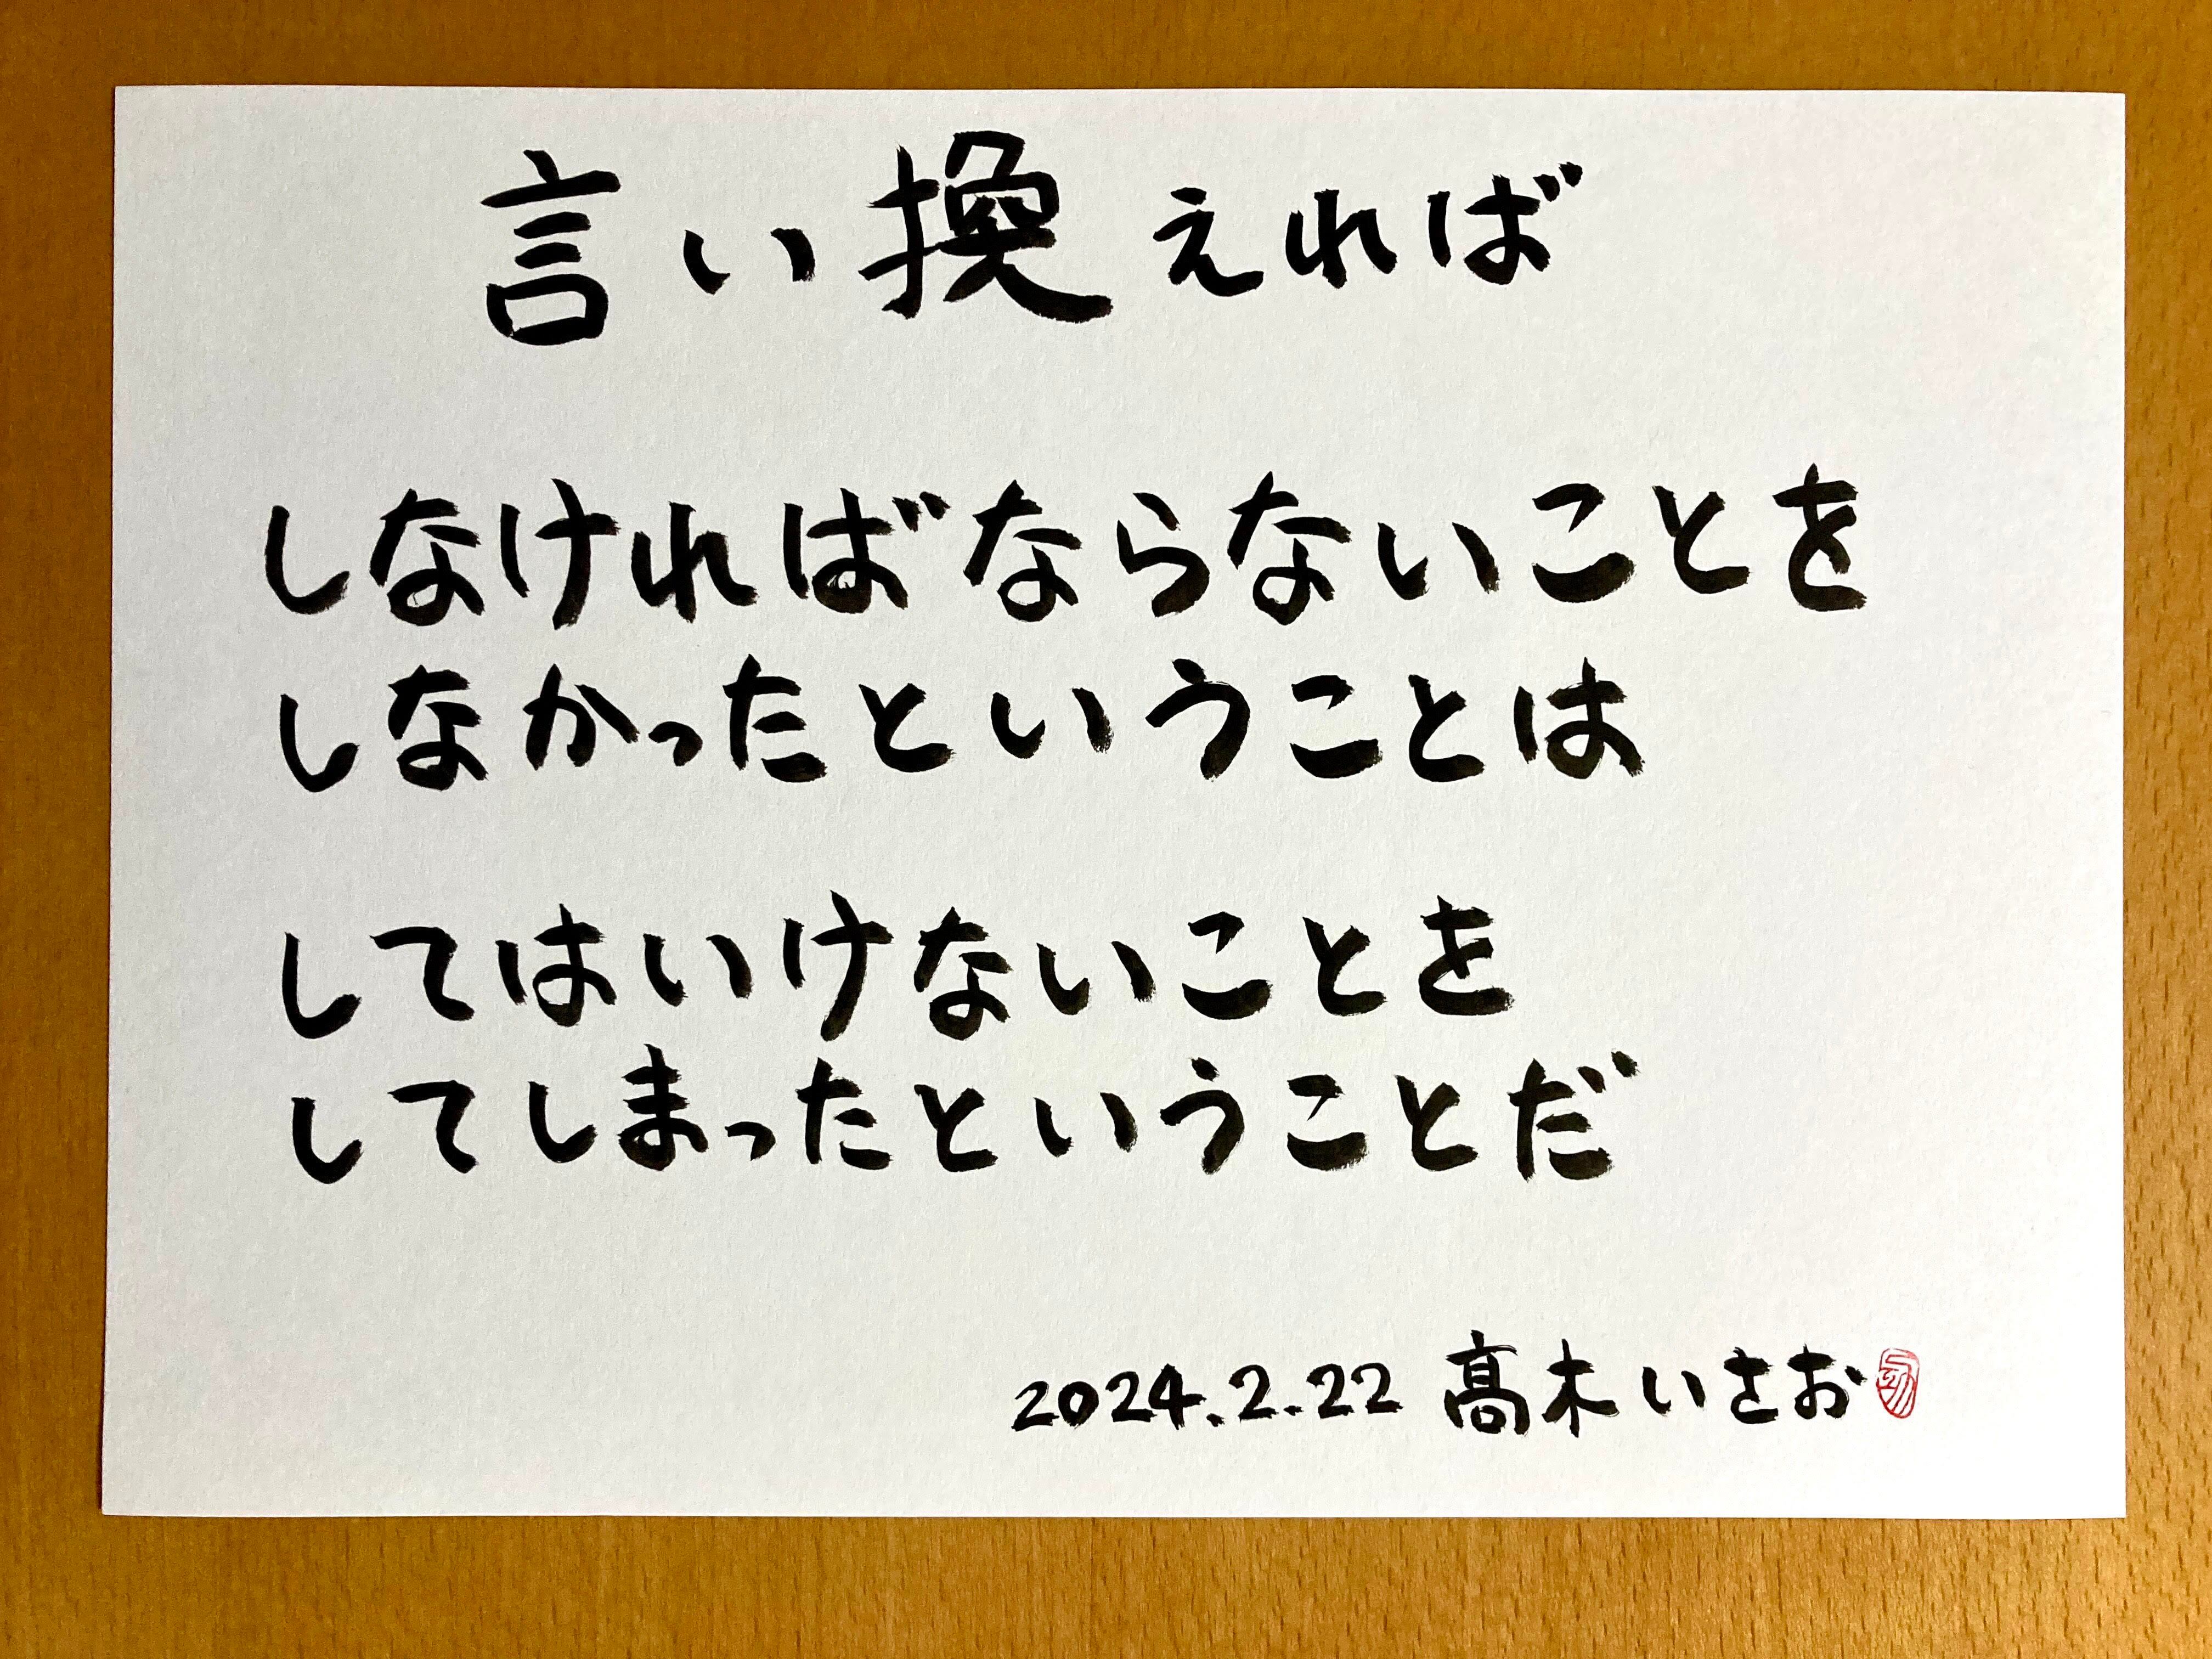 言い換えれば
しなければならないことを
しなかったということは
してはいけないことを
してしまったということだ
2024.2.22 髙木いさお